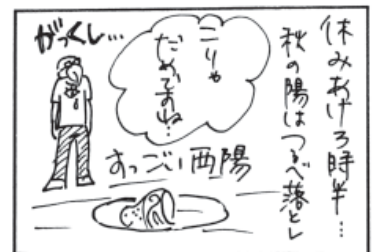 休みあけ3時半…
秋の陽はつるべ落とし
こりゃ
だめですね…
がっくし…
すっごい西陽